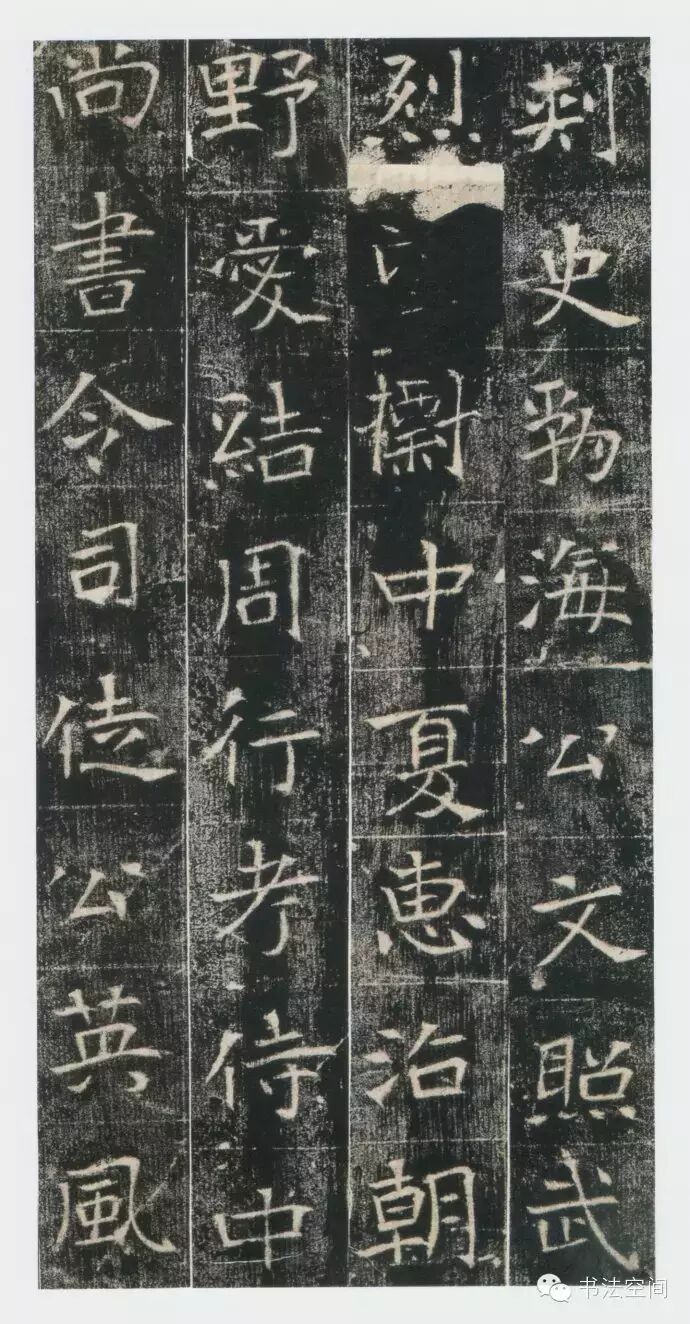 刺史勃海公文照武
烈標中夏惠洽朝
野愛結周行考侍中
尚書令司徒公英風
书法空间